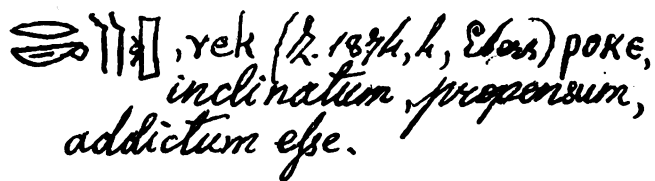 , rek (Z. 1874, 4, Ebers) ⲣⲟⲕⲉ,
inclinatum, propensum,
addictum eſse.